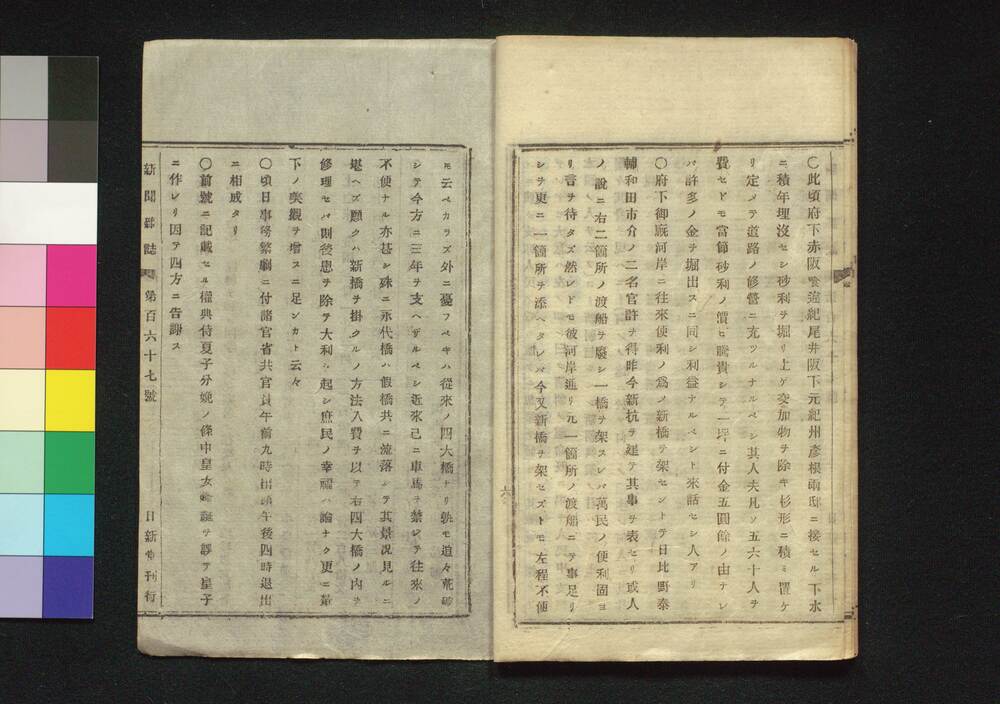 〇此頃府下赤阪喰違紀尾井阪下元紀州彦根兩邸ニ接セル下水
ニ積年埋沒セシ砂利ヲ堀リ上ゲ交加物ヲ除キ杉形ニ積ミ置ケ
リ定メテ道路ノ修營ニ充ツルナルベシ其人夫凡ソ五六十人ヲ
費セドモ當節砂利ノ價ヒ騰貴シテ一坪ニ付金五圓餘ノ由テレ
バ許多ノ金ヲ堀出スニ同シ利益ナルベシト來話セシ人アリ
〇府下御厩河岸ニ往來便利ノ爲メ新橋ヲ架セントテ日比野泰
輔和田市介ノ二名官許ヲ得昨今新杭ヲ建テ其事ヲ表セリ或人
ノ說ニ右二箇所ノ渡船ヲ廢シ一橋ヲ架スレバ萬民ノ便利固ヨ
リ言ヲ待タズ然レドモ彼河岸通リ凡一箇所ノ渡船ニテ事足リ
シヲ更ニ一箇所ヲ添ヘタレバ今又新橋ヲ架セズトモ左程不便
モ云ベカラズ外ニ憂フベキハ從來ノ四大橋ナリ孰モ追々荒破
シテ今方ニ三年ヲ支ヘザルベシ近來已ニ車馬ヲ禁シテ往來ノ
不便ナル亦甚シ殊ニ永代橋ハ假橋共ニ流落シテ其景況見ルニ
堪ヘズ願クハ新橋ヲ掛クルノ方法入費ヲ以テ右四大橋ノ内ヲ
修理セバ則後患ヲ除テ大利ヲ起シ庶民ノ幸福ハ論ナク更ニ輦
下ノ美觀ヲ增スニ足ンカト云々
〇頃日事務繁劇ニ付諸官省共官員午前九時出頭午後四時退出
ニ相成タリ
〇前號ニ記載セル權典侍夏子分娩ノ條中皇女ヲ誤テ皇子
ニ作レリ因テ四方ニ告謝ス
新聞雜誌 第百六十七號 日新堂刊行
六